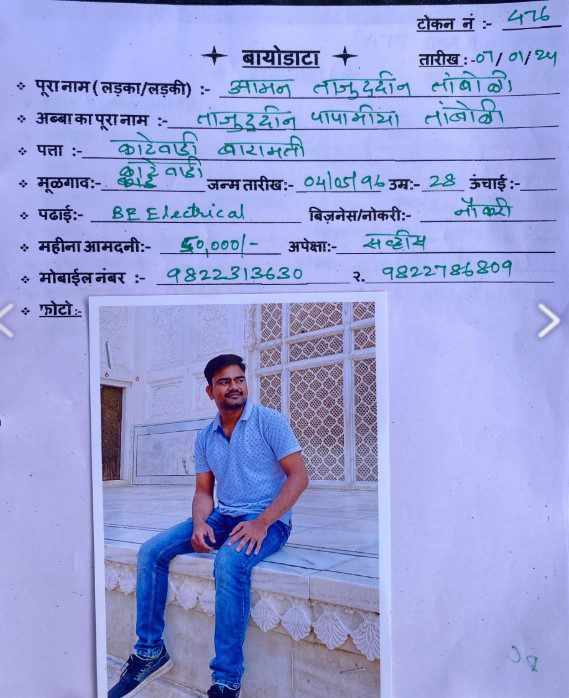 टोकन नं :- 476
बायोडाटा
तारीख :- 07/01/24
पूरा नाम ( लड़का/लड़की) :- आमन ताजुददीन तांबोळी
अब्बा का पूरा नाम :- ताजुददीन पापामीया तांबोळी
पत्ता :- काटेवाडी बारामती
मूळगाव:- काटेवाडी जन्म तारीख:- 04/05/96 उम्र:- 28 ऊंचाई:-
पढाई:- BE Electrical बिज़नेस/नोकरी:- नौकरी
महीना आमदनी:- 50,000/- अपेक्षा:-
मोबाईल नंबर :- 9822313630 २. 9822786809
फोटो:-